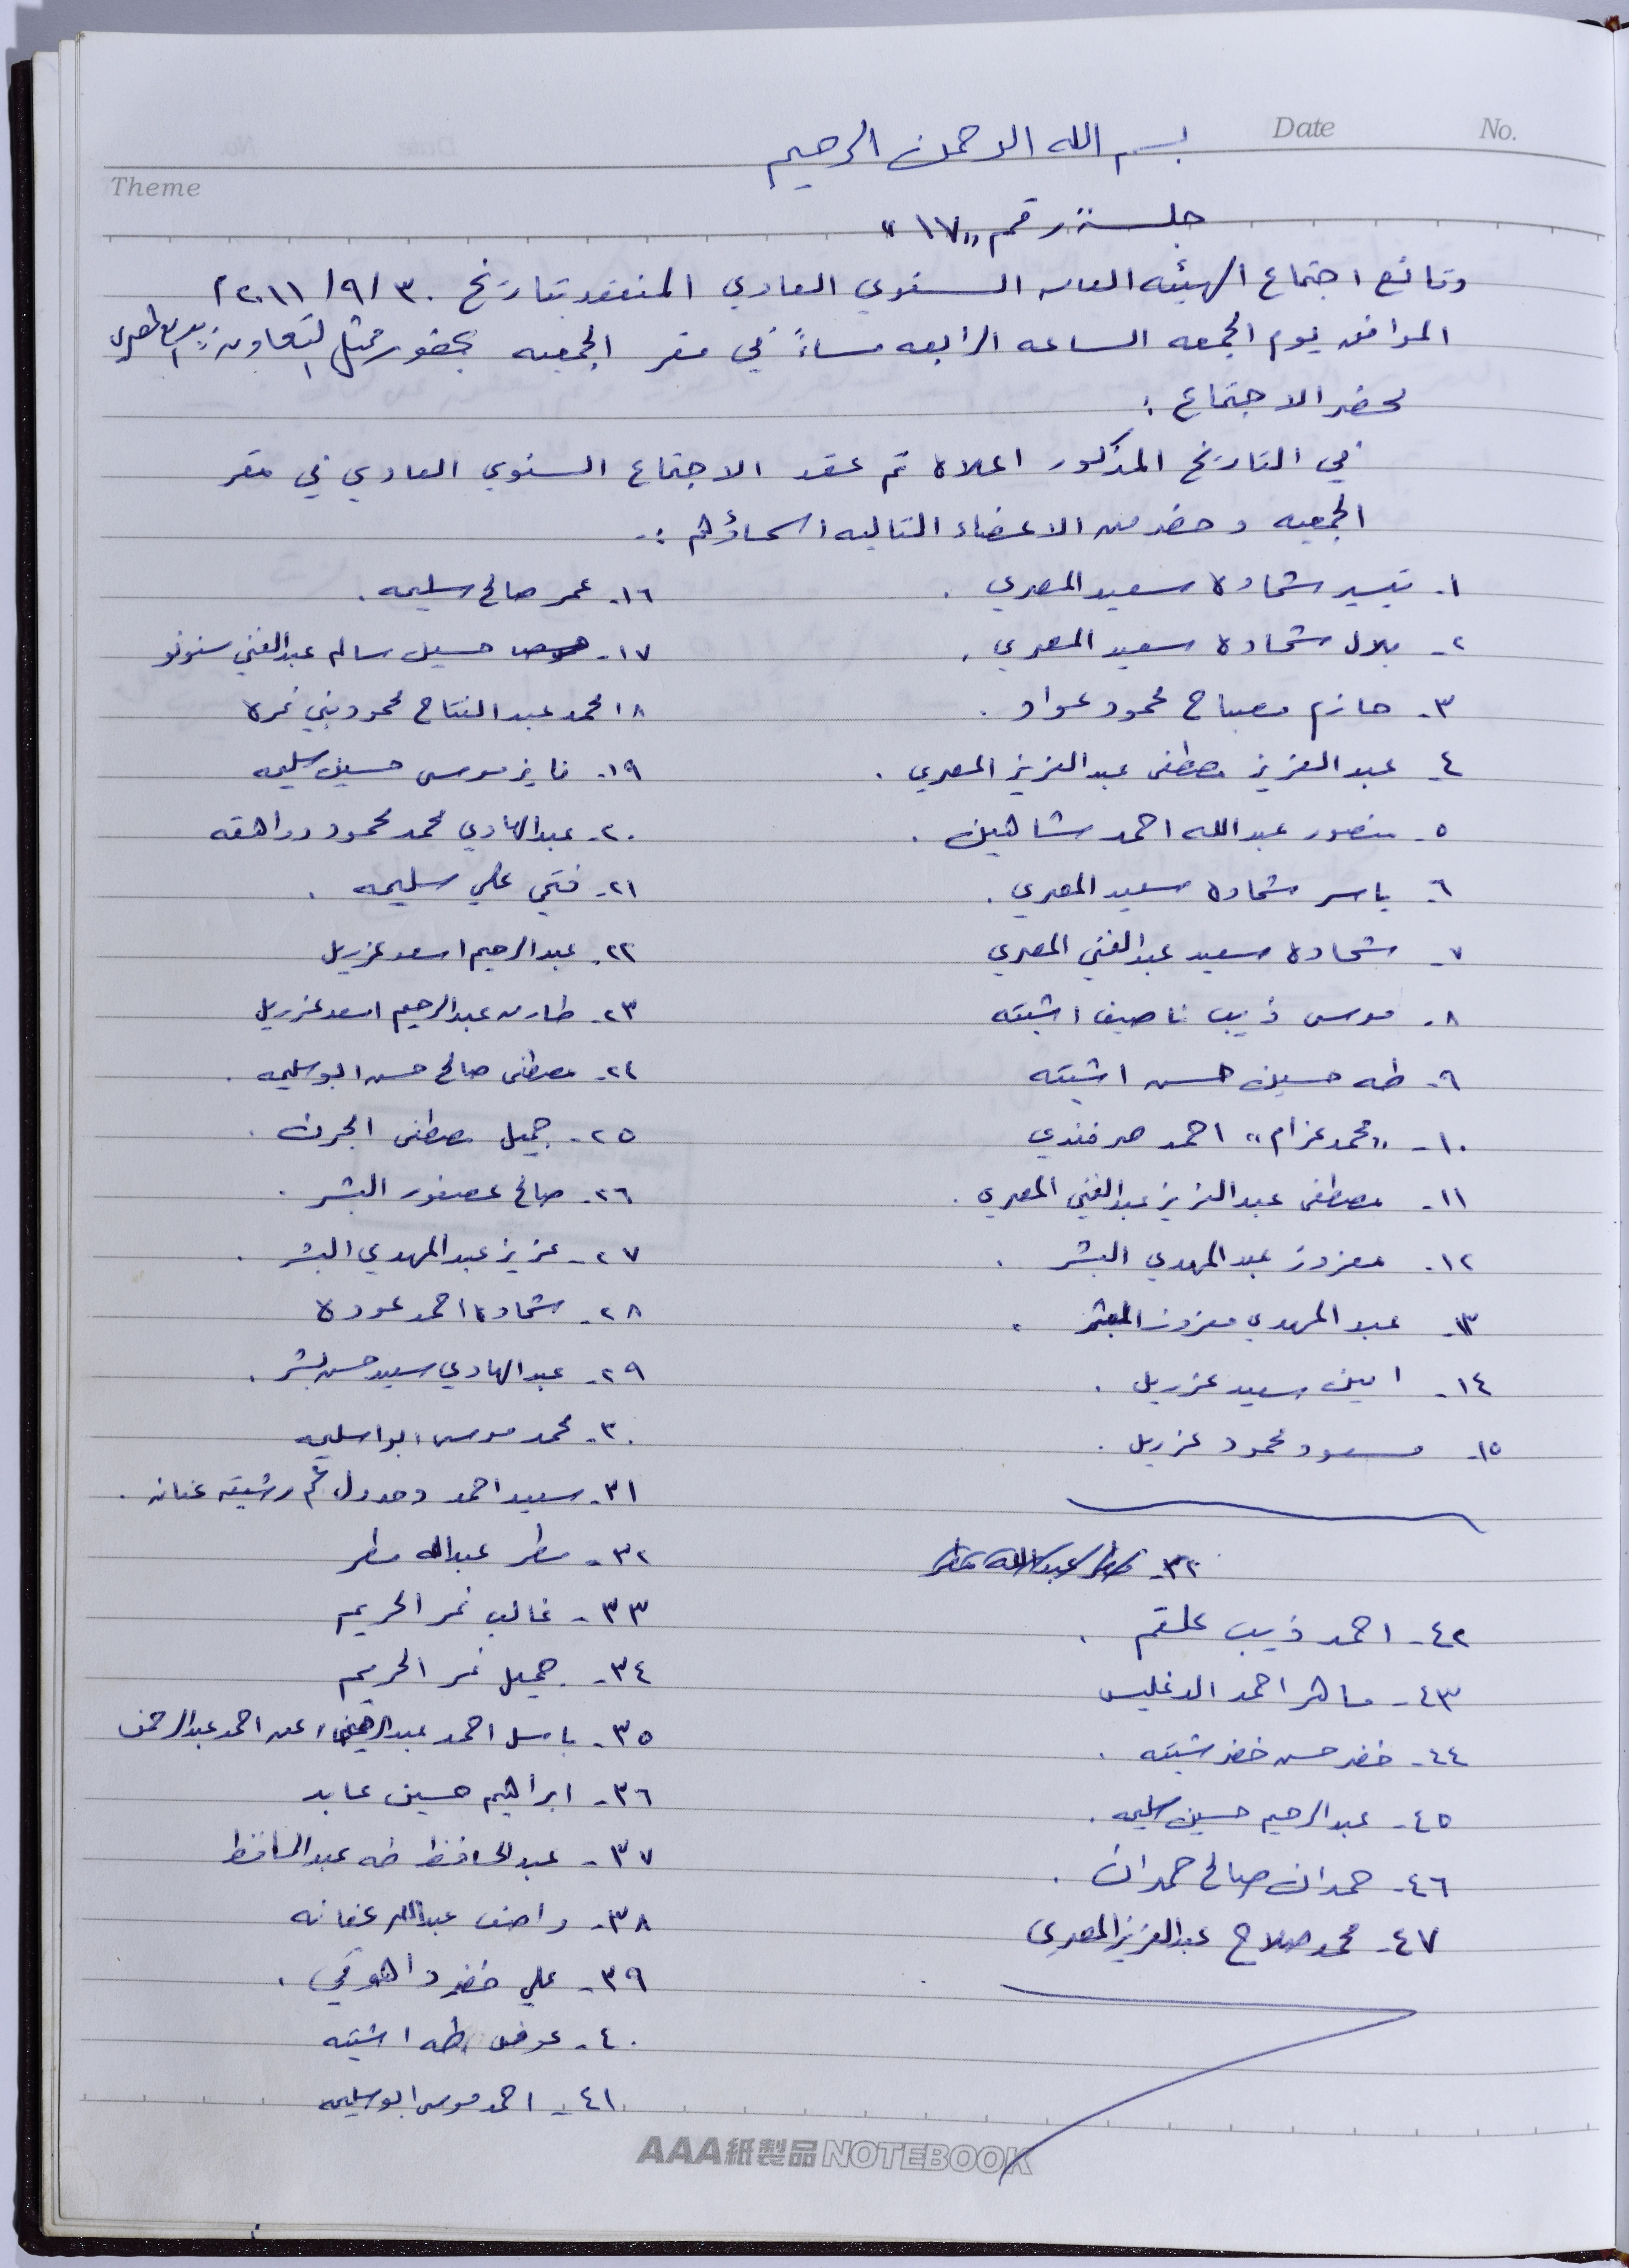 No.
Date
بسم الله الرحمن الرحيم
Theme
جلسة رقم "١٧"
وقائع اجتماع الهيئه العامه السنوي العادي المنعقد بتاريخ ٣٠/٩/٢٠١١
الموافق يوم الجمعه الساعه الرابعه مساءً في مقر الجمعيه بحضور ممثل التعاون
محضر الاجتماع :
في التاريخ المذكور اعلاه تم عقد الاجتماع السنوي العادي في مقر
الجمعيه وحضر من الاعضاء التاليه اسماؤهم :-
١- تيسير شحاده سعيد المصري .
٢- بلال شحاده سعيد المصري .
٣- حازم مصباح محمود عواد .
٤- عبد العزيز مصطفى عبد العزيز المصري .
٥- منصور عبد الله احمد شاهين .
٦- ياسر شحاده سعيد المصري .
٧- شحاده سعيد عبد الغني المصري
٨- موسى ذيب ناصيف اشتيه
٩- طه حسين حسن اشتيه
١٠- "محمد عزام" احمد صرفندي
١١- مصطفى عبد العزيز عبد الغني المصري .
١٢- معزوز عبد المهدي البشر .
١٣- عبد المهدي معزوز البشر .
١٤- امين سعيد عزريل .
١٥- مسعود محمود عزريل .
١٦- عمر صالح سليمه .
١٧- حسين سالم عبد الغني سنونو
١٨ محمد عبد الفتاح محمود بني نمره
١٩- فايز موسى حسين سليمه
٢٠- عبد الهادي محمد محمود مراهقه
٢١- فتحي علي سليمه .
٢٢- عبد الرحيم اسعد عزريل
٢٣- طارق عبد الرحيم اسعد عزريل
٢٤- مصطفى صالح حسن ابو سليمه .
٢٥- جميل مصطفى الجرن .
٢٦- صالح عصفور البشر .
٢٧- عزيز عبد المهدي البشر .
٢٨- شحاده احمد عوده
٢٩- عبد الهادي سعيد حسن بشر .
٣٠- محمد موسى ابو سليمه
٣١- سعيد احمد عفانه .
٣٢- مطر عبد الله مطر
٣٣- غالب نمر الحريم
٣٤- جميل نمر الحريم
٣٥- باسل احمد عن احمد عبد الرحمن
٣٦- ابراهيم حسين عابد
٣٧- عبد الحافظ طه عبد الحافظ
٣٨- واصف عبد الله عفانه
٣٩- علي خضر .
٤٠- عوض طه اشتيه
٤١- احمد موسى ابو سليمه
٣٢- مطر عبد الله مطر
٤٢- احمد ذيب علقم .
٤٣- ماهر احمد الدغليس
٤٤- خضر حسن خضر شتيه .
٤٥- عبد الرحيم حسين سليمه .
٤٦- حمدان صالح حمدان .
٤٧- محمد صلاح عبد العزيز المصري
AAA紙製品NOTEBOOK